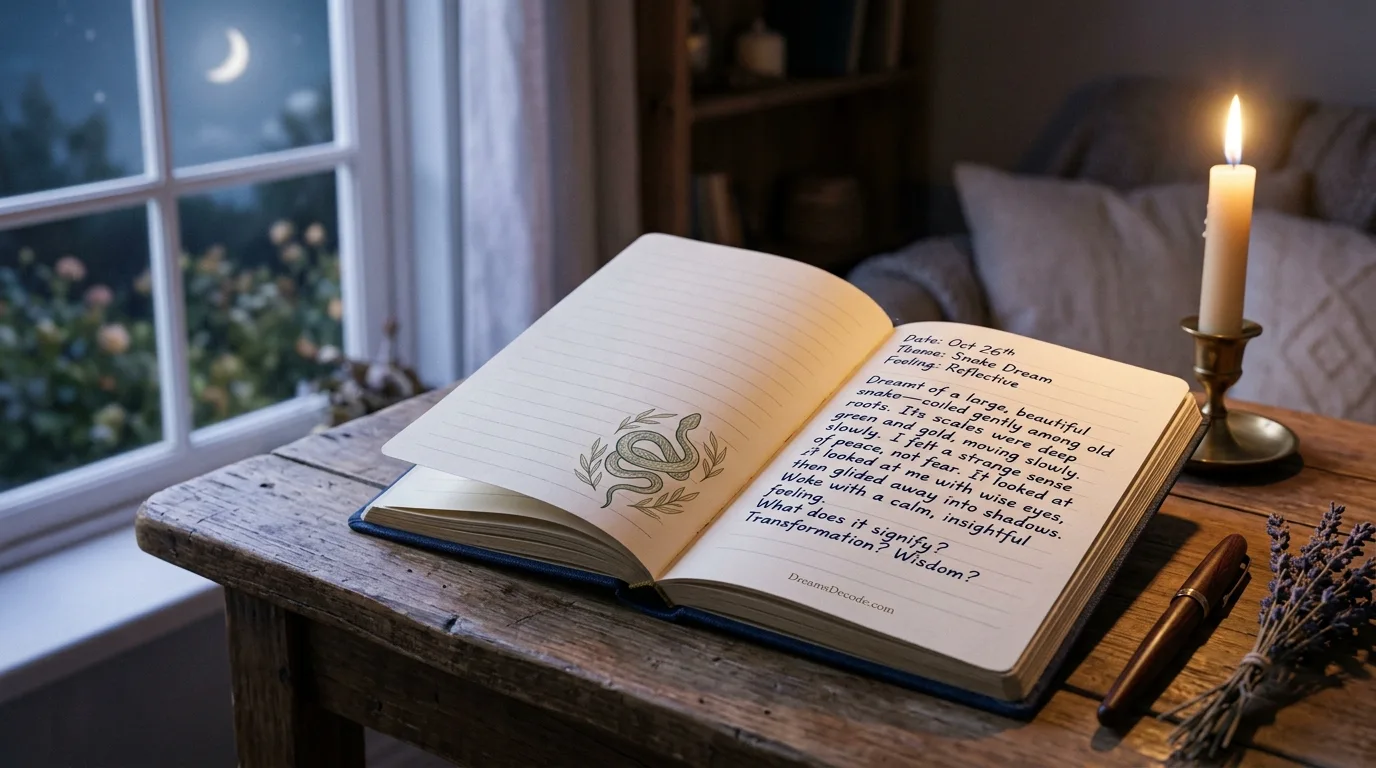 Date: Oct 26th
Theme: Snake Dream
Feeling: Reflective
Dreamt of a large, beautiful
snake—coiled gently among old
roots. Its scales were deep
green and gold, moving slowly
slowly. I felt a strange sense
of peace, not fear. It looked at
it looked at me with wise eyes,
then glided away into shadows.
Woke with a calm, insightful
feeling.
What does it signify?
Transformation? Wisdom?
DreamsDecode.com